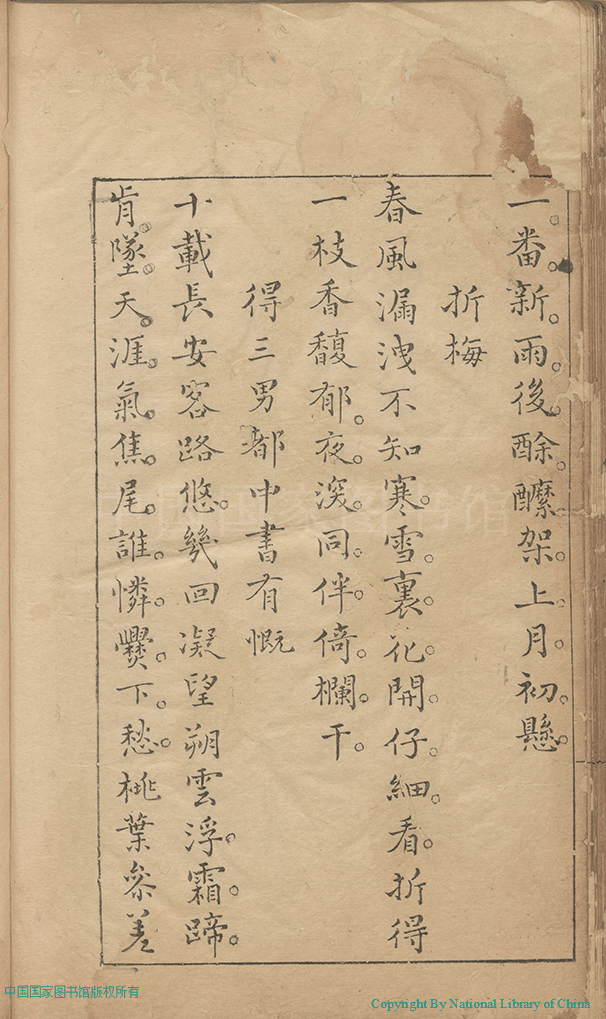 一番新雨後酴醾架上月初懸
折梅
春風漏洩不知寒雪裏花開仔細看折得
一枝香馥郁夜深同伴倚欄干
得三男都中書有慨
十載長安客路悠幾回凝望朔雲浮霜蹄
肯墜天涯氣焦尾誰憐爨下愁桃葉參差
中国国家图书馆版权所有
Copyright By National Library of China